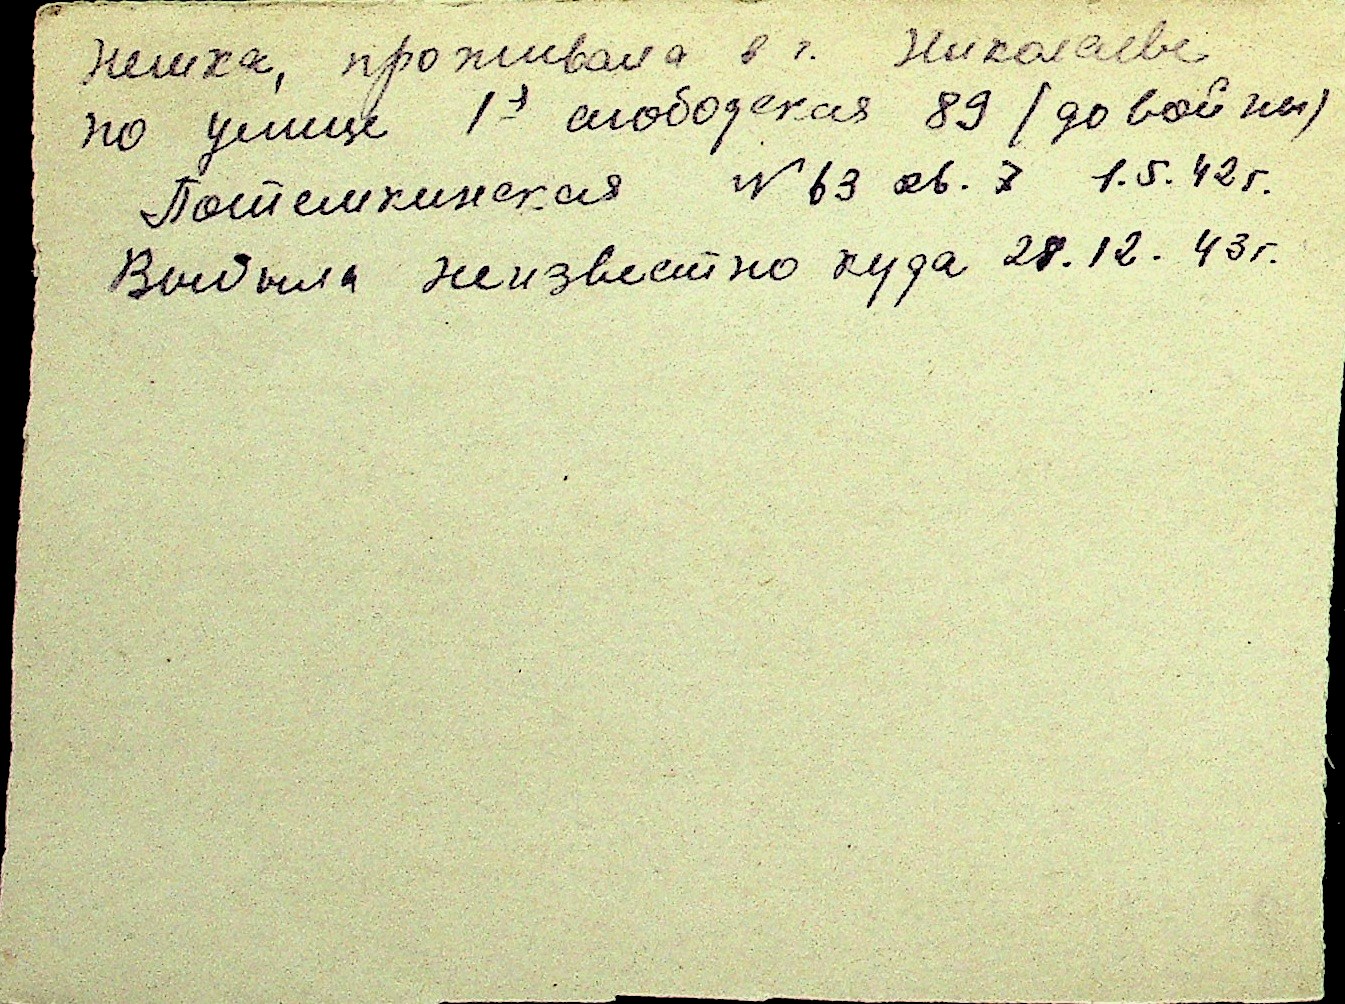 немка, проживала в г. Николаеве
по улице 1я слободская 89 (до войны)
Потемкинская № 63 кв. 7 1.5.42 г.
Выбыла неизвестно куда 28.12.43 г.